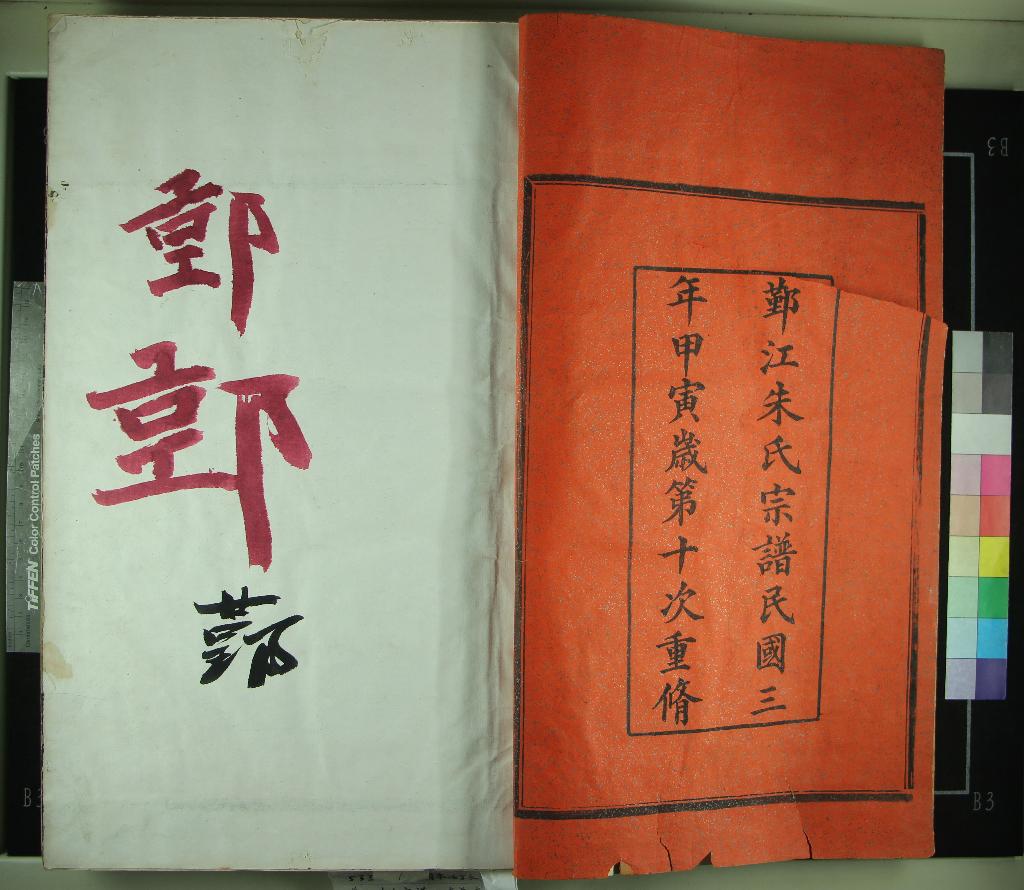 鄞江朱氏宗譜民國三
年甲寅歲第十次重脩
鄞
鄞
鄞
TIFFEN Color Control Patches
B3
B3
B3